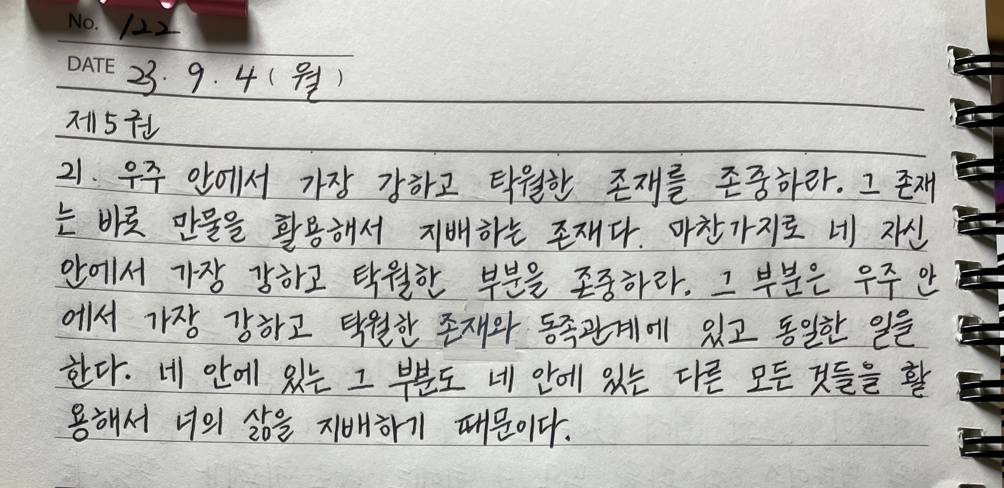 No. 122
DATE 23. 9. 4 ( 월 )
제5권
21. 우주 안에서 가장 강하고 탁월한 존재를 존중하라. 그 존재
는 바로 만물을 활용해서 지배하는 존재다. 마찬가지로 네 자신
안에서 가장 강하고 탁월한 부분을 존중하라. 그 부분은 우주 안
에서 가장 강하고 탁월한 존재와 동족관계에 있고 동일한 일을
한다. 네 안에 있는 그 부분도 네 안에 있는 다른 모든 것들을 활
용해서 너의 삶을 지배하기 때문이다.